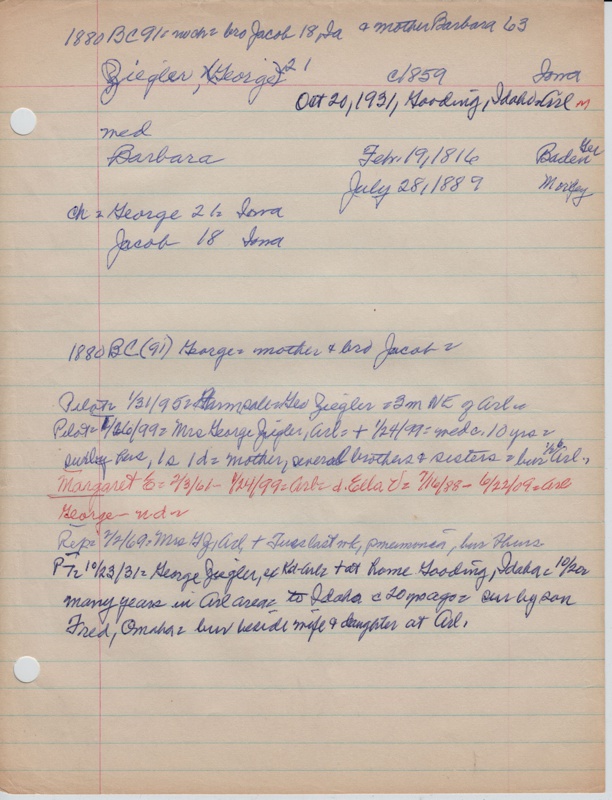 1880 BC 91 = no ch = bro Jacob 18, Ia & mother Barbara 63
Ziegler, (George) 21 c/859 Iowa
Oct 20, 1931, Gooding, Idaho = Arl m
med
Barbara Feb. 19, 1816 Baden Ger
July 28, 1889
ch = George 21 = Iowa
Jacob 18 Iowa
1880 BC (91) George = mother & bro Jacob =
Pilot = 1/31/95 = Farm sale = Geo Ziegler = 3 m NE of Arl =
Pilot = 1/26/99 = Mrs George Ziegler, Arl = + 1/24/99 = med c. 10 yrs =
surv by hus, 1 s 1 d = mother, several brothers & sisters = bur Arl.
Margaret E = 2/3/61 - 1/24/99 = Arl = d. Ella V = 7/16/88 - 6/22/09 = Arl
George - n.d =
Rep = 7/2/69 = Mrs G Z, Arl, + Tues last wk, pneumonia, bur Thurs.
PT = 10/23/31 = George Ziegler, ex Rd-Arl = + at Home Gooding, Idaha = 10/20 =
many years in Arl area = to Idaha c 20 ys ago = sur by son
Fred, Omaha = bur beside wife & daughter at Arl.